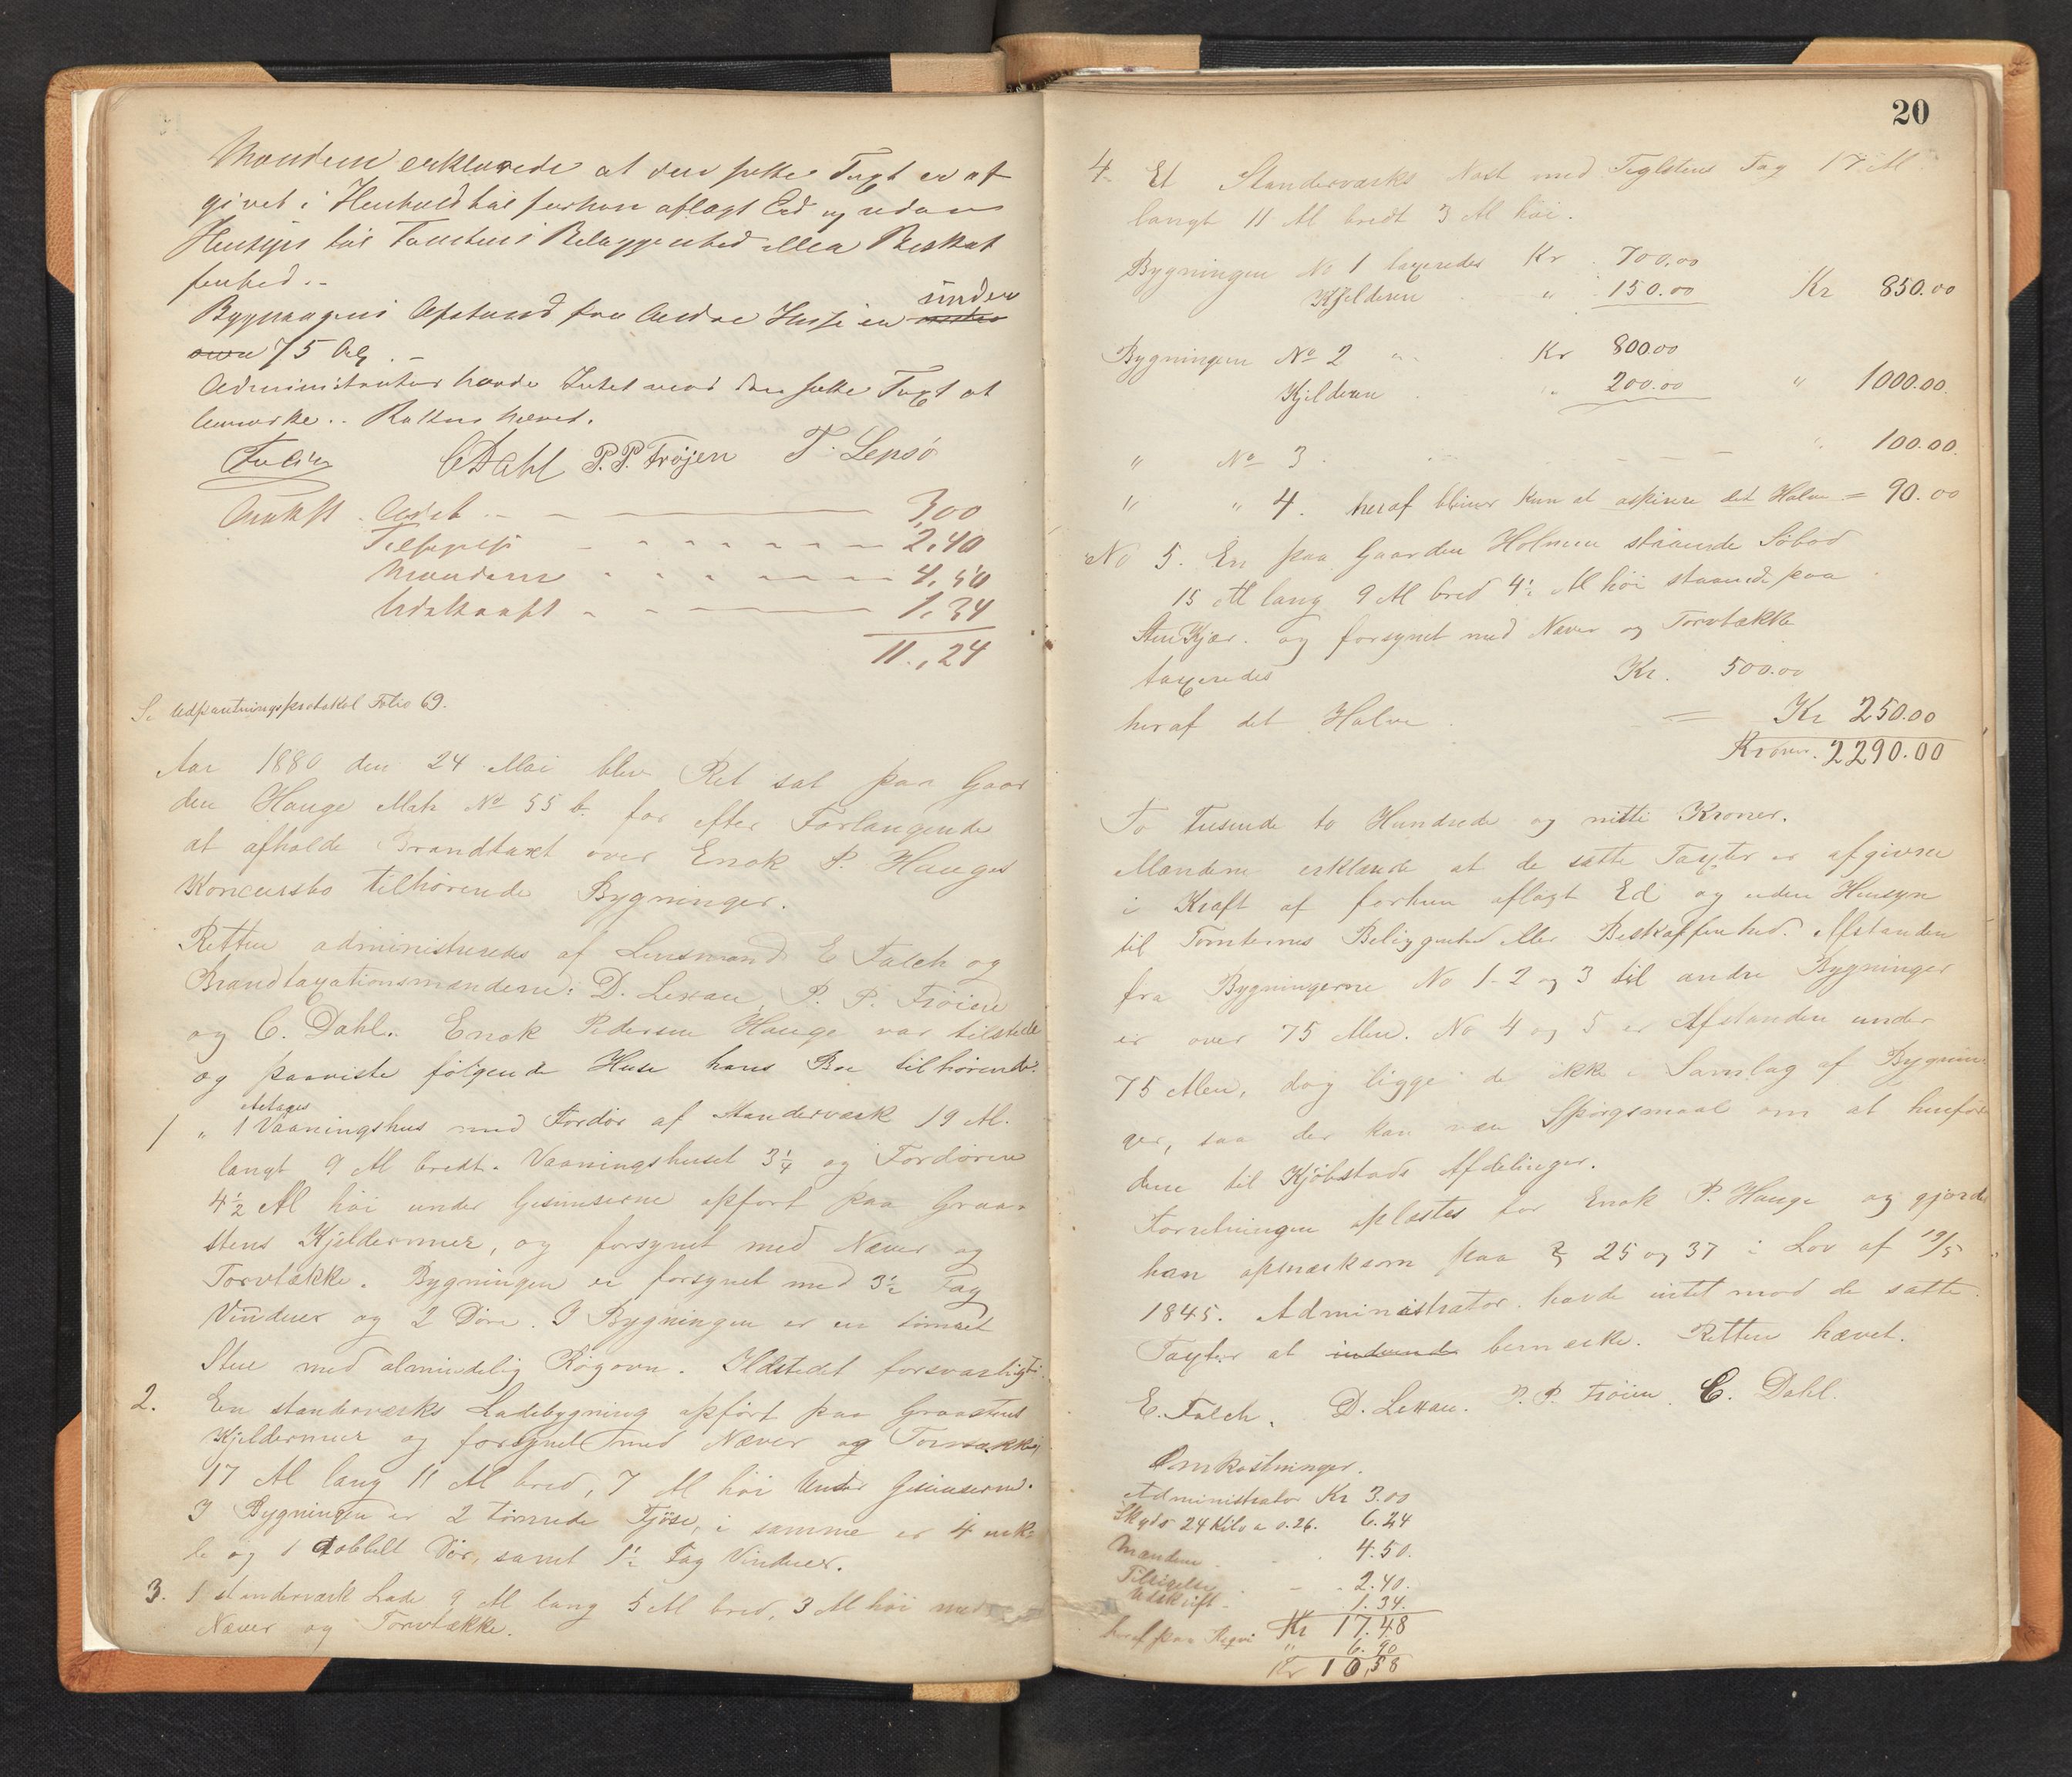 Mændene erklærede at den satte Taxt er af
givet i Henhold til forhen aflagt Ed og uden
Hensyn til Tomtens Beliggenhed eller Beskaf
fenhed. -
under
Bygningens Afstand fra andre Huse er
75 Al. -
Administrator havde Intet mod den satte Taxt at
bemærke. . Retten hævet.
Falch CDahl P.P. Frøjen T. Lepsö
Omkst. Adct. 3,00
Tilsigelse 2,40
Mændene 4,50
Udskrift 1,34
11,24
Se Udpantningsprotokol Folio 69.
Aar 1880 den 24 Mai blev Ret sat paa Gaar
den Hauge Matr No 55 b. for efter Forlangende
at afholde Brandtaxt over Enok P. Hauges
Koncursbo tilhørende Bygninger.
Retten administreredes af Lensmand E Falch og
Brandtaxationsmændene: D. Lexau, P. P. Frøien
og C. Dahl. Enok Pedersen Hauge var tilstede
og paaviste følgende Huse hans Boe tilhørende:
Etages
1 " 1 Vaaningshus med Fordör af Standerværk 19 Al.
langt 9 Al bredt. Vaaningshuset 3¼ og Fordören
4½ Al höi under Gesimserne opfört paa Graa-
stens Kjeldermur, og forsynet med Næver og
Torvtække. Bygningen er forsynet med 3½ Fag
Vinduer og 2 Döre. I Bygningen er en tömret
Stue med almindelig Rögovn. Ildstedet forsvarligt.
2. En standerværks Ladebygning opfört paa Graastens
Kjeldermur og forsynet med Næver og Torvtække,
17 Al lang 11 Al bred, 7 Al höi under Gesimserne.
I Bygningen er 2 tömrede Fjöse, i samme er 4 enk-
le og 1 dobbelt Dör, samt 1½ Fag Vinduer.
3. 1 standerværk Lade 9 Al lang 5 Al bred, 3 Al höi med
Næver og Torvtække.
20
4. Et Standerværks Nöst med Teglstens Tag 17 Al
langt 11 Al bredt 3 Al höi.
Bygningen No 1 taxeredes Kr. 700,00
Kjelderen " 150.00 Kr 850.00
Bygningen No 2 " Kr 800.00
Kjelderen " 200.00 " 1000.00.
" No 3 . " 100.00.
" " 4. heraf bliver kun at det Halve = 90.00
No 5. En paa Gaarden Holmen staaende Söbod
15 Al lang 9 Al bred 4½ Al höi staaende paa
og forsynet med Næver og Torvtække
taxeredes Kr. 500.00
heraf det Halve = Kr 250.00
Kroner. 2290.00
To Tusende to Hundrede og nitti Kroner.
Mændene erklærede at de satte Taxter er afgivne
i Kraft af forhen aflagt Ed og uden Hensyn
til Tomternes Beliggenhed eller Beskaffenhed. Afstanden
fra Bygningerne No 1-2 og 3 til andre Bygninger
er over 75 Alen. No 4 og 5 er Afstanden under
75 Alen, dog ligge de ikke i Samlag af Bygnin-
ger, saa der kan være Spörgsmaal om at henföre
dem til Kjöbstads Afdelinger.
Forretningen oplæstes for Enok P. Hauge og gjordes
han opmærksom paa § 25 og 37 i Lov af 19/5
1845. Administrator havde intet mod de satte
Taxter at indvende bemærke. Retten hævet.
E. Falch. D. Lexau. P. P. Fröien. C. Dahl.
Omkostninger.
Administrator Kr 3.00
Skyds 24 Kilo a 0.26. 6.24
Mændene 4.50.
Tilsigelse 2.40.
Udskrift 1.34.
Kr 17.48
heraf paa Reqvi " 6.90
Kr 10,58